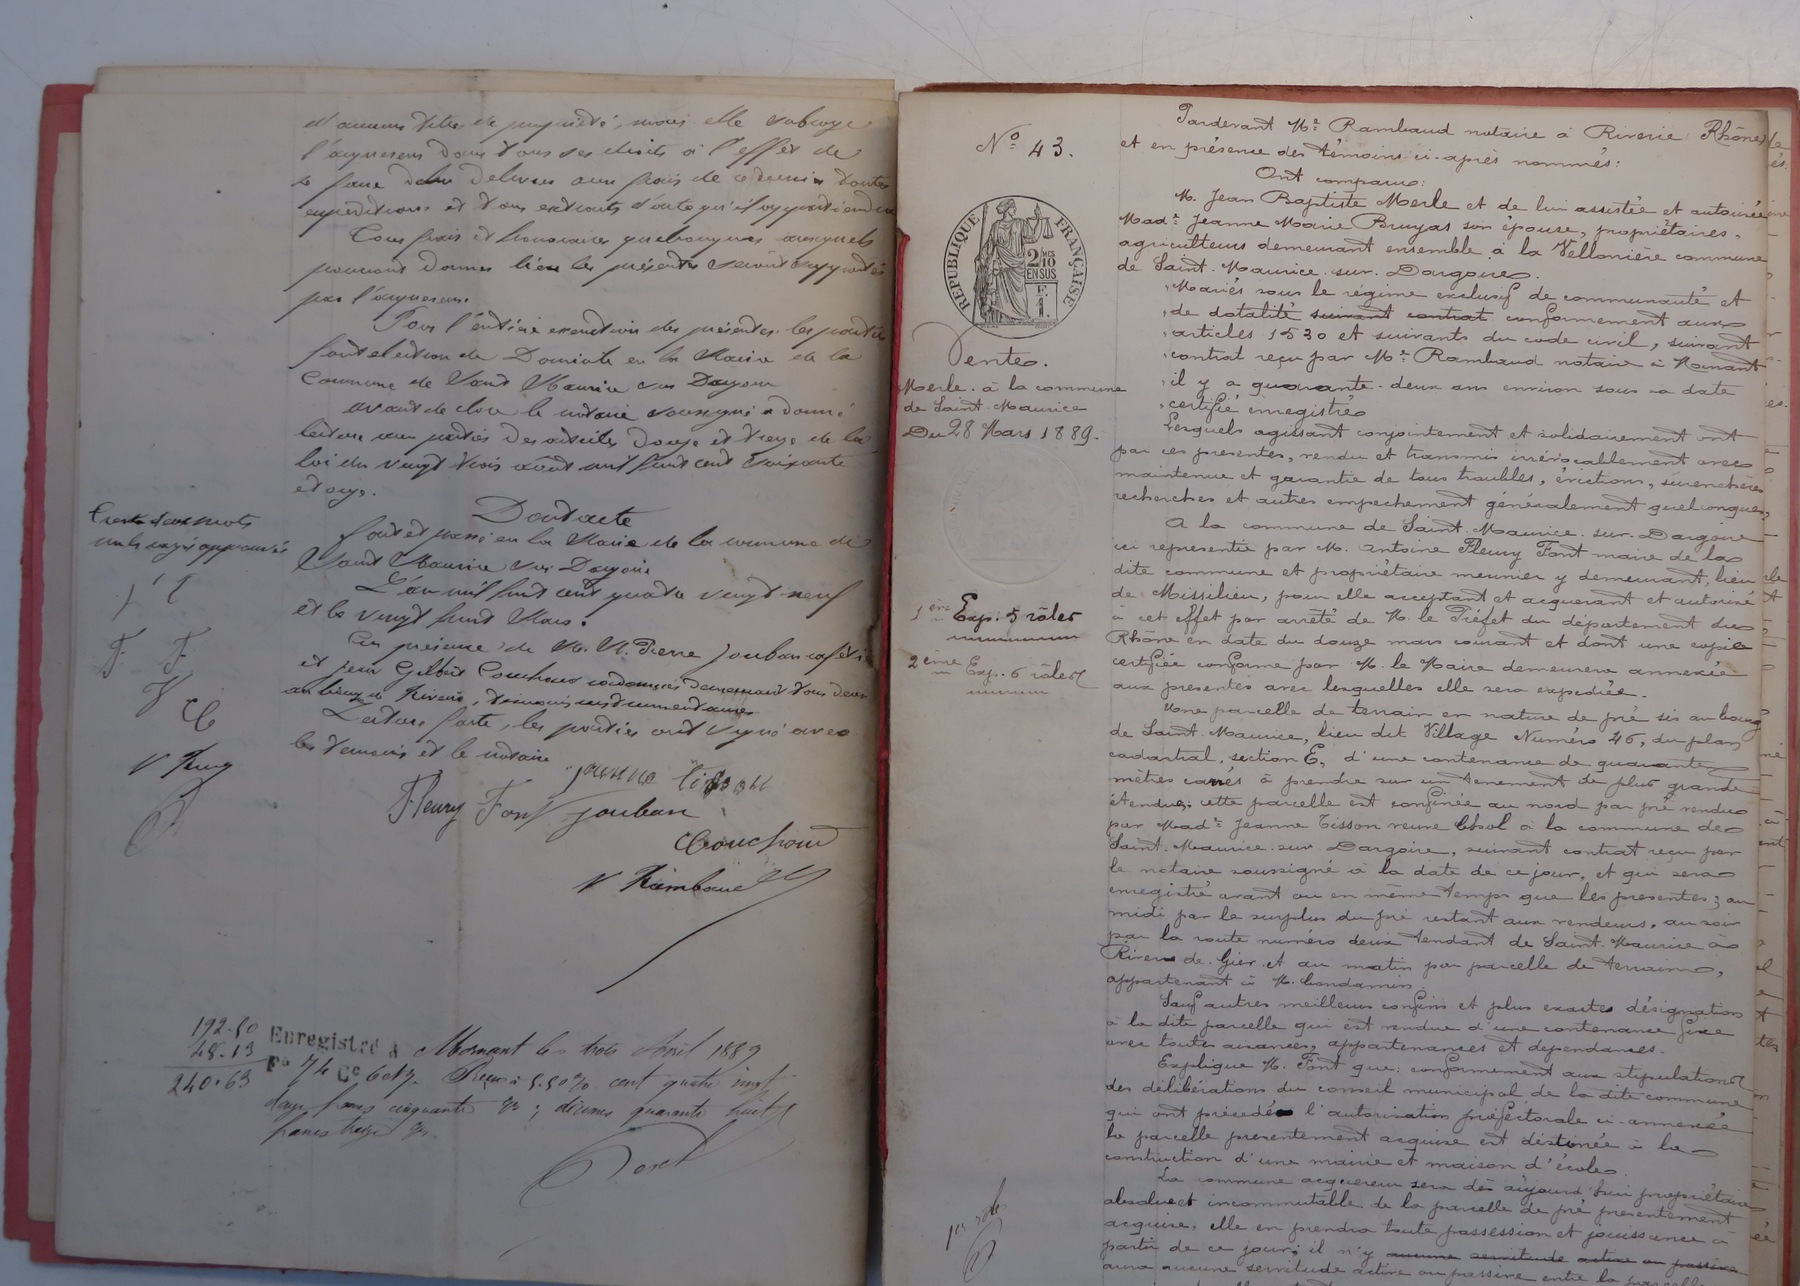 d'aucuns titres de propriété, mais elle subroge
l'acquereur dans tous ses droits à l'effet de
se faire delivrer aux frais de ce dernier toutes
expeditions et tous extraits d'acte qu'il appartiendra
Tous frais et honoraires quelconques auxquels
pourront donner lieu les présentes seront supportés
par l'acquereur.
Pour l'entière execution des présentes les parties
font election de Domicile en la Mairie de la
Commune de Saint Maurice sur Dargoire
avant de clore le notaire soussigné a donné
lecture aux parties des articles douze et treize de la
loi du vingt trois août mil huit cent soixante
et onze.
Dont acte
fait et passé en la Mairie de la commune de
Saint Maurice sur Dargoire
L'an mil huit cent quatre vingt neuf
et le vingt huit Mars.
En présence de M. M. Pierre Jouban cafetier
et Jean Gilbert Couchoud cordonnier demeurant tous deux
au bourg de Riverie, témoins instrumentaires
Lecture faite, les parties ont signé avec
les temoins et le notaire
Trente deux mots
nuls rayés approuvés
J T
F. F.
J
C
V Ramb
jeanne tisson
Fleury Font jouban
Couchoud
V Rambaud
192-50
48-13
240-63
Enregistré à Mornant le trois Avril 1889
F° 74 C° 6 et 7. Reçu à 5.50% cent quatre vingt
douze francs cinquante c. ; décimes quarante huit
francs treize c.
N° 43.
REPUBLIQUE FRANÇAISE
2 MES
10
EN SUS
F.
1.
Vente.
Merle à la commune
de Saint-Maurice
Du 28 Mars 1889.
1ère Exp. 5 rôles
2ème Exp. 6 rôles
1er rôle
Pardevant Me Rambaud notaire à Riverie (Rhône)
et en présence des témoins ci-après nommés:
Ont comparu:
M. Jean Baptiste Merle et de lui assistée et autorisée
Made Jeanne Marie Bruyas son épouse, propriétaires,
agriculteurs demeurant ensemble à la Vellonière commune
de Saint-Maurice-sur-Dargoire.
Mariés sous le régime exclusif de communauté et
de dotalité suivant contrat conformement aux
articles 1530 et suivants du code civil, suivant
contrat reçu par Me Rambaud notaire à Mornant
il y a quarante-deux ans environ sous sa date
certifié enregistré
Lesquels agissant conjointement et solidairement ont
par ces presentes, vendu et transmis irrévocablement avec
maintenue et garantie de tous troubles, évictions, surenchères
recherches et autres empechement généralement quelconques,
A la commune de Saint-Maurice-sur-Dargoire
ici representée par M. Antoine Fleury Font maire de la
dite commune et propriétaire meunier y demeurant, lieu
de Missilieu, pour elle acceptant et acquerant et autorisé
à cet effet par arrêté de M. le Préfet du département du
Rhône en date du douze mars courant et dont une copie
certifiée conforme par M. le Maire demeurera annexée
aux presentes avec lesquelles elle sera expediée.
Une parcelle de terrain en nature de pré sis au bourg
de Saint-Maurice, lieu dit Village Numéro 46, du plan
cadastral, section E, d'une contenance de quarante
mètres carrés à prendre sur un tenement de plus grande
étendue; cette parcelle est confinée au nord par pré vendu
par Made Jeanne Tisson veuve Chol à la commune de
Saint-Maurice-sur-Dargoire, suivant contrat reçu par
le notaire soussigné à la date de ce jour, et qui sera
enregistré avant ou en même temps que les presentes; au
midi par le surplus du pré restant aux vendeurs, au soir
par la route numéro deux tendant de Saint-Maurice à
Rive de Gier et au matin par parcelle de terrain,
appartenant à M. Condamin
Sauf autres meilleurs confins et plus exactes désignations
à la dite parcelle qui est vendue d'une contenance fixe
avec toutes aisances, appartenances et dependances.
Explique M. Font que: conformement aux stipulations
des délibérations du conseil municipal de la dite commune
qui ont précédé l'autorisation préfectorale ci-annexée
la parcelle presentement acquise est destinée à la
construction d'une mairie et maison d'école.
La commune acquereur sera dès aujourd'hui propriétaire
absolue et incommutable de la parcelle de pré presentement
acquise, elle en prendra toute possession et jouissance à
partir de ce jour; il n'y aucune servitude active ou passive
aura aucune servitude active ou passive entre la parcelle